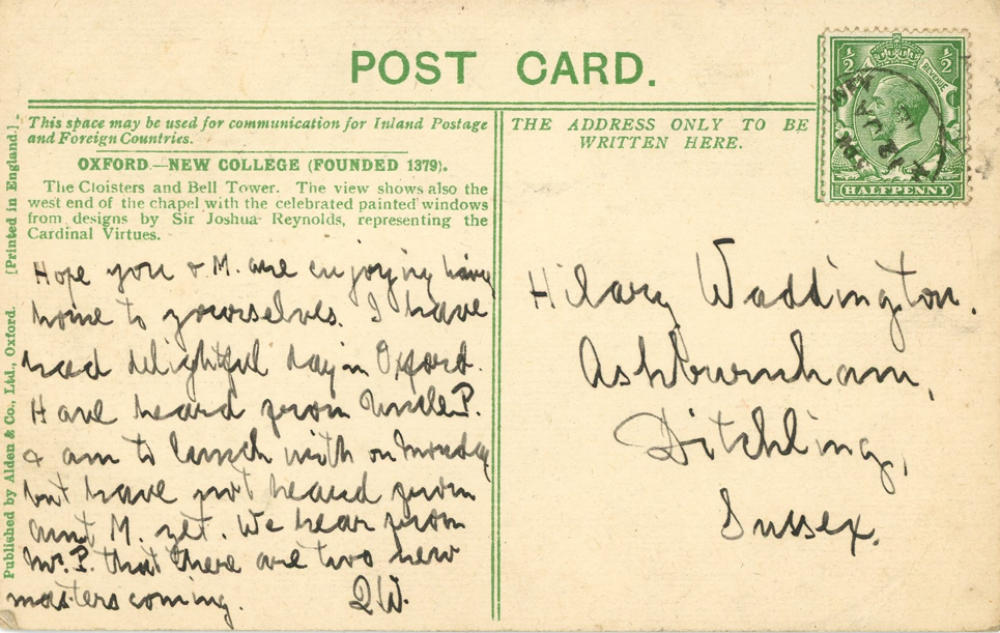 POST CARD.
This space may be used for communication for Inland Postage
and Foreign Countries.
THE ADDRESS ONLY TO BE
WRITTEN HERE.
OXFORD.—NEW COLLEGE (FOUNDED 1379).
The Cloisters and Bell Tower. The view shows also the
west end of the chapel with the celebrated painted windows
from designs by Sir Joshua Reynolds, representing the
Cardinal Virtues.
Hope you & M. are enjoying having
home to yourselves. I have
had delightful day in Oxford.
Have heard from Uncle P.
& am to lunch with on Monday
but have not heard from
Aunt M. yet. We hear from
Mr. P. that there are two new
masters coming. W.
Hilary Waddington.
Ashburnham,
Ditchling,
Sussex.
Published by Alden & Co., Ltd., Oxford. [Printed in England.]
½ ½
REVENUE
HALFPENNY
12 JA